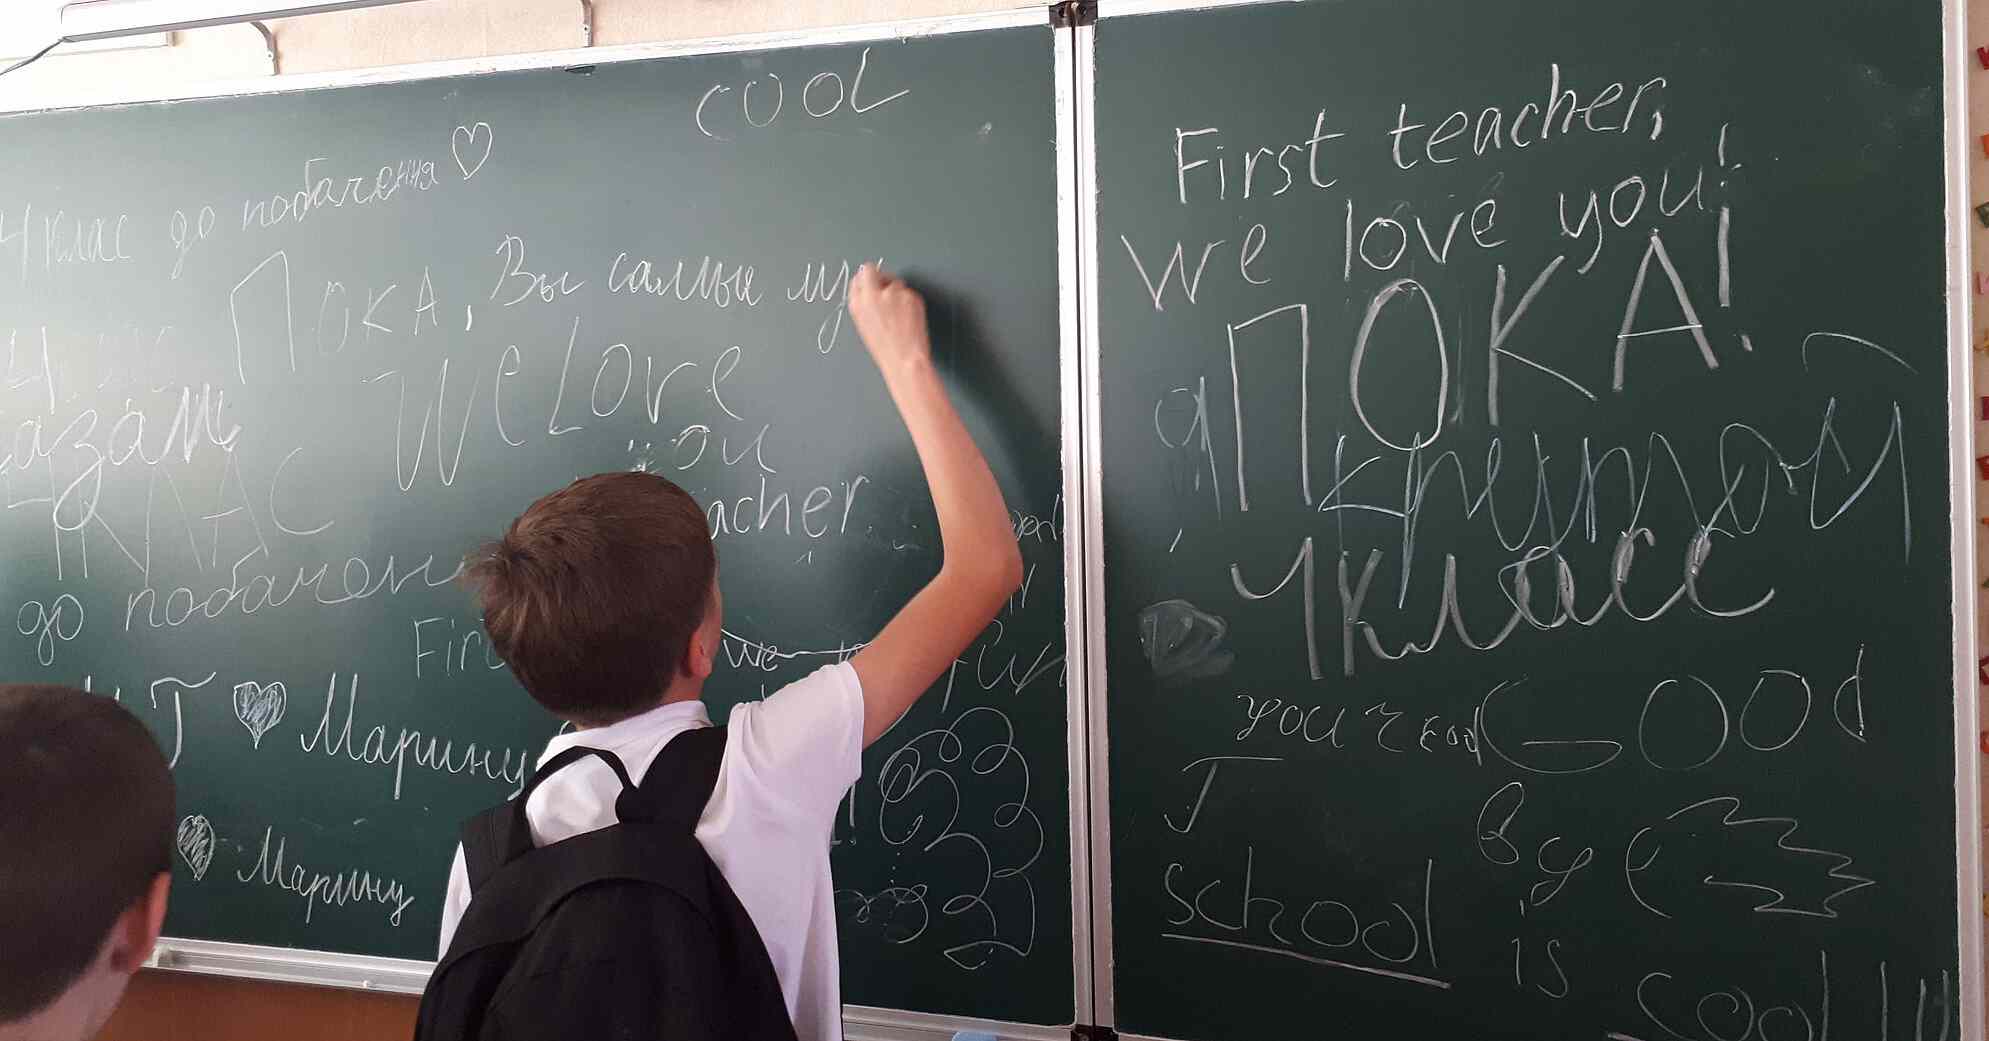 COOL
4 клас до побачення
ПОКА, Вы самыи лу
We Love
4
азам
4 КЛАС
acher
до побачен
Firs
we
Fun
Т Марину
Марину
First teacher,
we love you!
ПОКА!
я
крутой
4 класс
you read GOOd
J
By
school
is
cool !!!